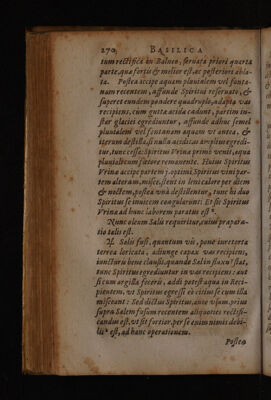 270 BASILICA
tum rectifica in Balneo, seruata priori quarta
parte, quæ fortis & melior est, ac posteriori abla-
ta. Postea accipe aquam pluuialem vel fonta-
nam recentem, affunde Spiritui reseruato, &
superet eundem pondere quadruplo, adapta vas
recipiens, cùm gutta acida cadunt, partim in-
star glaciei egrediuntur, affunde adhuc semel
pluuialem vel fontanam aquam vt antea, &
iterum destilla, si nulla aciditas amplius egredi-
tur, tunc cessa: Spiritus Vrinæ primò venit, aqua
pluuialis cum fœtore remanente. Huius Spiritus
Vrinæ accipe partem 1. optimi Spiritus vini par-
tem alteram, misce, stent in leni calore per diem
& noctem, postea vnà destillentur, tunc hi duo
Spiritus se inuicem coagularunt: Et sic Spiritus
Vrinæ ad hunc laborem paratus est.
Nunc oleum Salis requiritur, cuius præpara-
tio talis est.
℞. Salis fusi, quantum vis, pone in retorta
terrea loricata, adiunge capax vas recipiens,
iuncturis bene clausis, quando Sal in fluxu stat,
tunc Spiritus egrediuntur in vas recipiens: aut
si cum argilla fecerit, addi potest aqua in Reci-
pientem, vt Spiritus egressi eò citius se cum illa
misceant: Sed dictus Spiritus, ante vsum, prius
supra Salem fusum recentem aliquoties rectifi-
candus est, vt sit fortior, per se enim nimis debi-
lis est, ad hanc operationem.
Postea